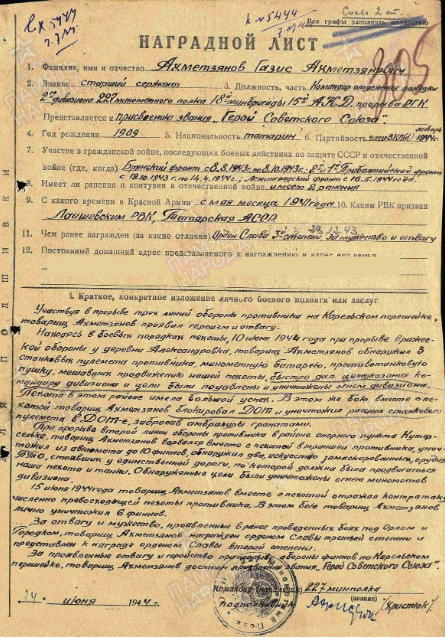 Слава 2 ст.
к № 5444
Все графы заполнять полностью
НАГРАДНОЙ ЛИСТ
1. Фамилия, имя и отчество Ахметзянов Газис Ахметзянович
2. Звание старший сержант 3. Должность, часть Командир отделения разведки
2го дивизиона 227 минометного полка 18ой минбригады 15ой А.К.Д. прорыва РГК
Представляется к Присвоению звания „Герой Советского Союза"
4. Год рождения 1909 5. Национальность татарин 6. Партийность член ВКП(б) января 1944г.
7. Участие в гражданской войне, последующих боевых действиях по защите СССР и отечественной
войне (где, когда) Брянский фронт с 8.8.1943г. по 8.10.1943г. 2й, 1й Прибалтийский фронт
с 18.10.1943 по 14.4.1944г., Ленинградский фронт с 16.5.1944 года.
8. Имеет ли ранения и контузии в отечественной войне имеет 2 ранения
9. С какого времени в Красной Армии с мая месяца 1941 года 10. Каким РВК призван
Лаишевским РВК, Татарская АССР
11. Чем ранее награжден (за какие отличия) Орден Слава 3й степени 29.12.43 За мужество и отвагу
12. Постоянный домашний адрес представляемого к награждению и адрес его семьи
I. Краткое, конкретное изложение личного боевого подвига или заслуг
Участвуя в прорыве трех линий обороны противника на Карельском перешейке,
товарищ Ахметзянов проявил героизм и отвагу.
Находясь в боевых порядках пехоты, 10 июня 1944 года при прорыве вражес-
кой обороны у деревни Александровка, товарищ Ахметзянов обнаружил 3
станковых пулемета противника, минометную батарею, противотанковую
пушку, мешавших продвижению нашей пехоты, быстро дал целеуказание ко-
мандиру дивизиона и цели были подавлены и уничтожены огнем дивизиона.
Пехота в этом районе имела большой успех. В этом же бою вместе с пе-
хотой товарищ Ахметзянов блокировал ДОТ и уничтожил расчет станкового
пулемета в ДОТ-е, забросав амбразуры гранатами.
При прорыве второй линии обороны противника в районе опорного пункта Кутер-
селька, товарищ Ахметзянов ворвался вместе с пехотой в траншеи противника, унич-
тожил из автомата до 10 финнов, обнаружил два, искусно замаскированных, орудия
ПТО, стоявших у единственной дороги, по которой должна была продвигаться
наша пехота и танки. Обнаруженные цели были уничтожены огнем минометов
дивизиона.
15 июня 1944 года товарищ Ахметзянов вместе с пехотой отражал контратаку
численно превосходящей пехоты противника. В этом бою товарищ Ахметзянов
лично уничтожил 6 финнов.
За отвагу и мужество, проявленные в ранее проведенных боях под Орлом и
Городком, товарищ Ахметзянов награжден орденом Славы третьей степени и
представлен к награде орденом Славы второй степени.
За проявленные отвагу и геройство при прорыве обороны финнов на Карельском
перешейке, товарищ Ахметзянов достоин присвоения звания „Герой Советского Союза".
Командир 227 минполка
подполковник
24 июня 1944 г.